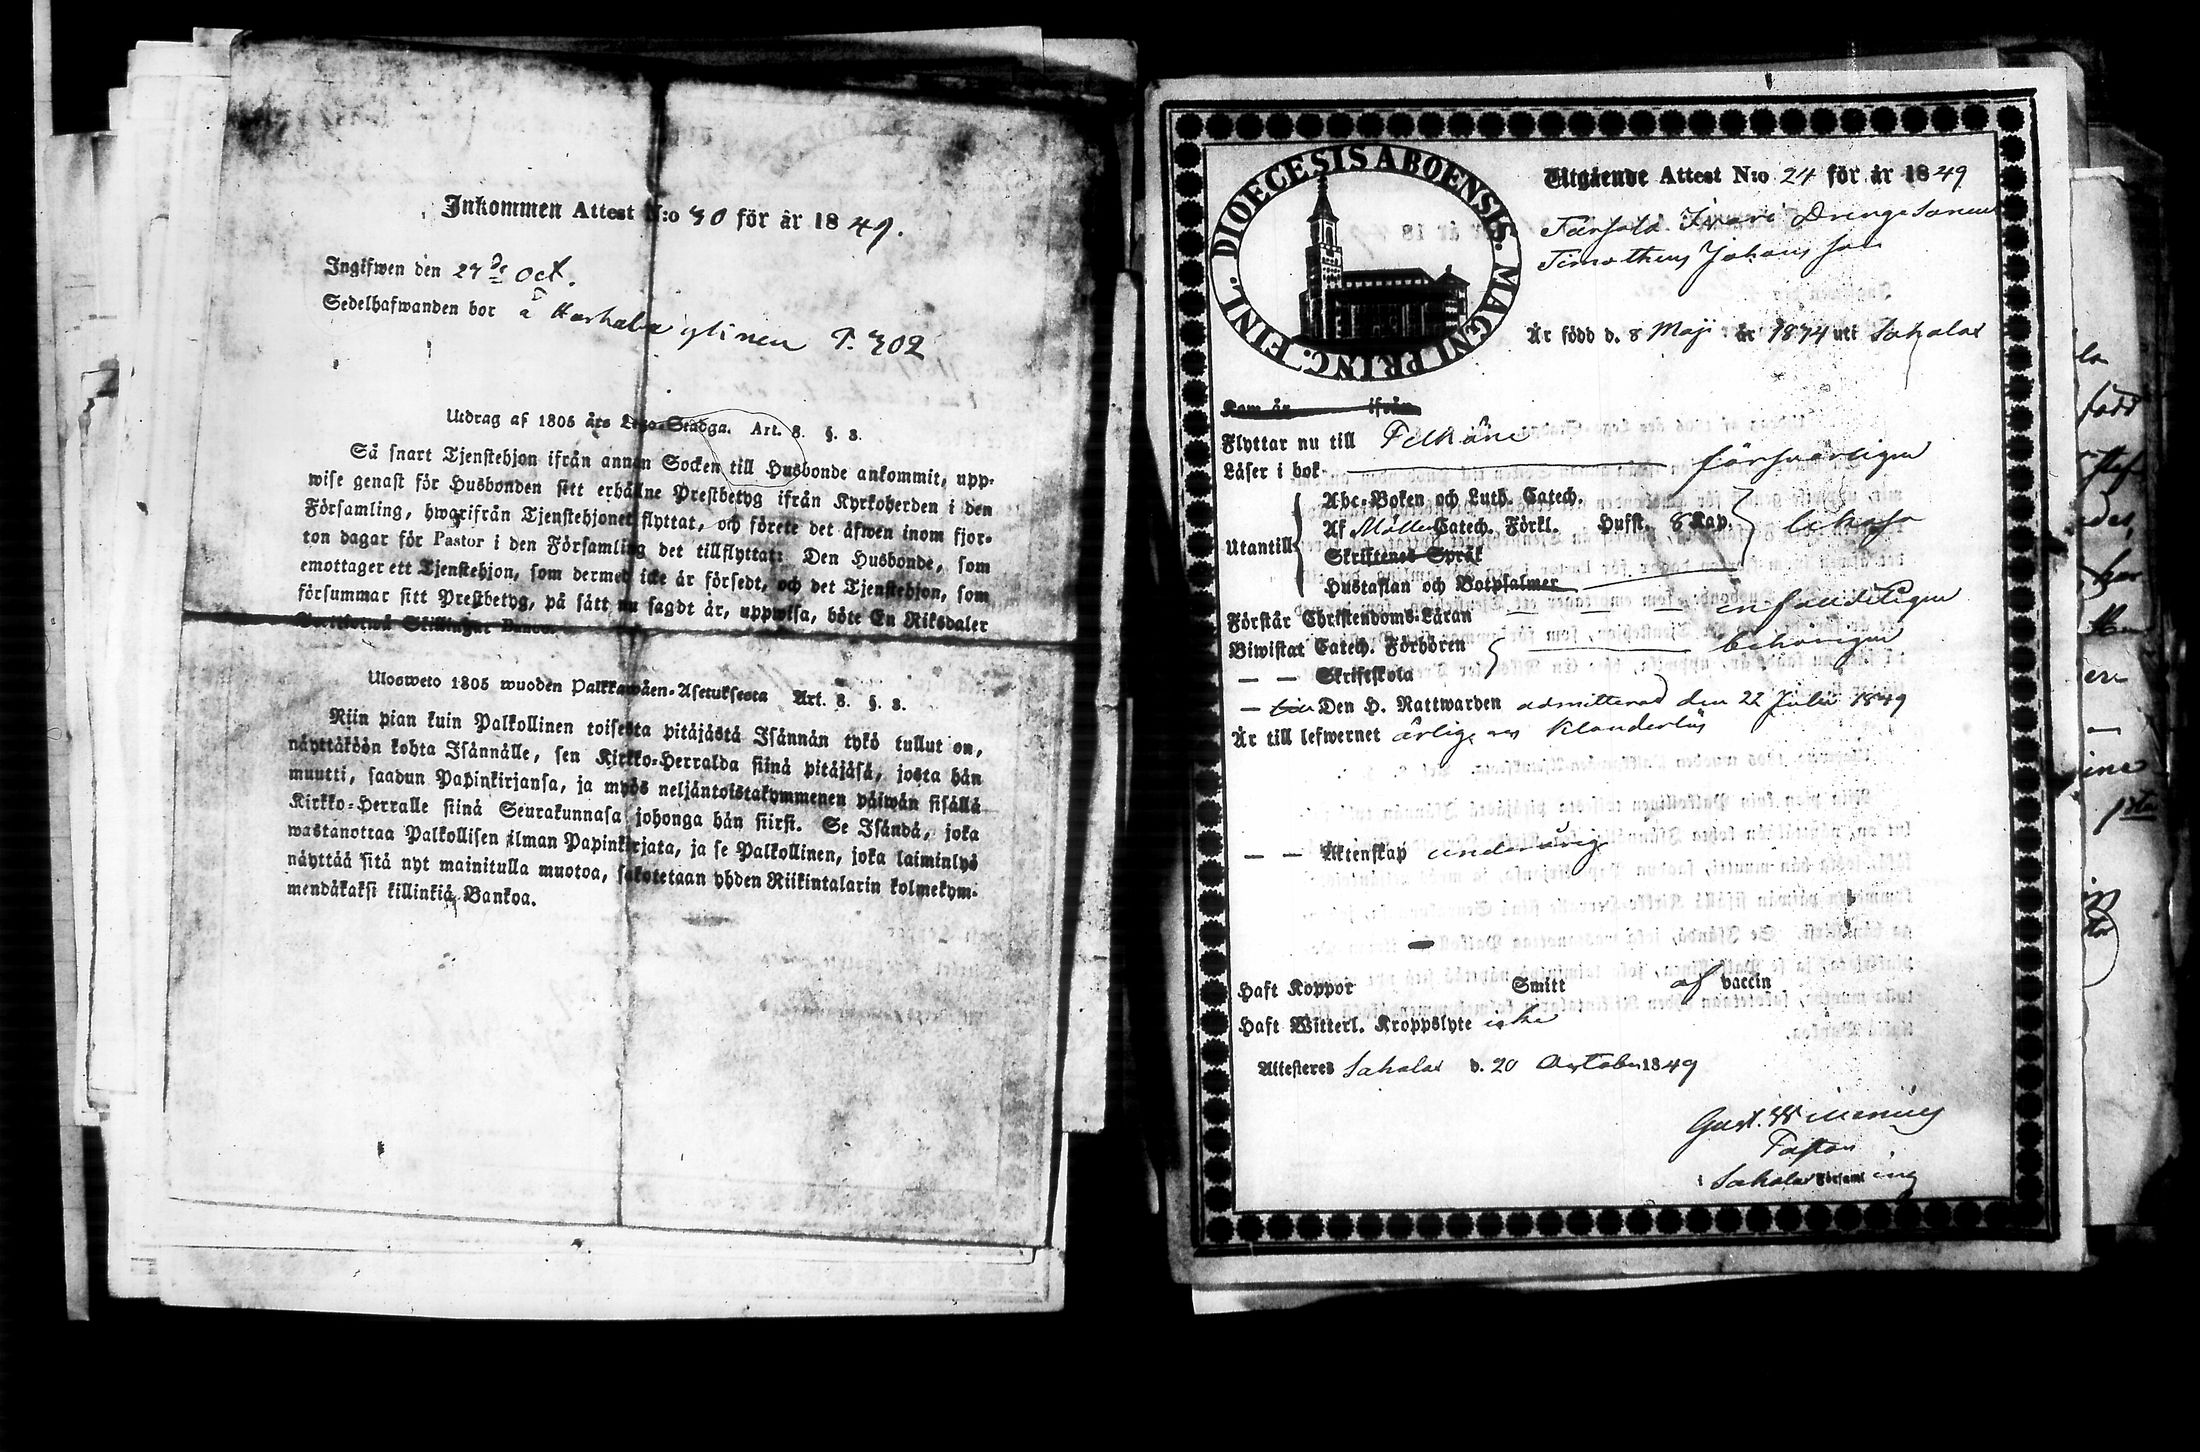 Inkommen Attest N:o 30 för år 1849.
Ingifwen den 27de Oct.
Sedelhafwanden bor å P. 302
Utdrag af 1805 års Lego-Stadga. Art. 8. §. 3.
Så snart Tjenstehjon ifrån annan Socken till Husbonde ankommit, upp-
wise genast för Husbonden sitt erhållne Prestbetyg ifrån Kyrkoherden i den
Församling, hwarifrån Tjenstehjonet flyttat, och förete det äfwen inom fjor-
ton dagar för Pastor i den Församling det tillflyttat: Den Husbonde, som
emottager ett Tjenstehjon, som dermed icke är försedt, och det Tjenstehjon, som
försummar sitt Prestbetyg, på sätt nu sagdt är, uppwisa, böte En Riksdaler
Skillingar Banco.
Ulosweto 1805 wuoden Palkkawäen-Asetuksesta Art. 8. §. 3.
Niin pian kuin Palkollinen toisesta pitäjästä Isännän tykö tullut on,
näyttäköön kohta Isännälle, sen Kirkko-Herralda siinä pitäjäsä, josta hän
muutti, saadun Papinkirjansa, ja myös neljäntoistakymmenen päiwän sisällä
Kirkko-Herralle siinä Seurakunnasa johonga hän siirsi. Se Isändä, joka
wastanottaa Palkollisen ilman Papinkirjata, ja se Palkollinen, joka laiminlyö
näyttää sitä nyt mainitulla muotoa, sakotetaan yhden Riikintalarin kolmekym-
mendäkaksi killinkiä Bankoa.
DIOECESIS ABOENSIS. MAGNI PRINC. FINL.
Utgående Attest N:o 24 för år 1849
Drenge Sonen
Timotheus Johansson
Är född d. 8 Maji år 1874 uti Sahalax
Kom år ifrån
Flyttar nu till Pelkäne
Läser i bok försvarligen
Abc-Boken och Luth. Catech.
Utantill Af Möllers Catech. Förkl. Hufst. 8 Kap.
Skriftenes Språk
Hustaflan och Botpsalmer
Förstår Christendoms-Läran
Biwistat Catech. Förhören behörigen
— — Skriftskola
— Den H. Nattwarden admitterad den 22 Julii 1849
Är till lefwernet ärlig klanderlös
— — Äktenskap
Haft Koppor Smitt af vaccin
Haft Witterl. Kroppslyte icke
Attesteres Sahalax d. 20 October 1849
Gust.
Pastor
i Sahalax Församling